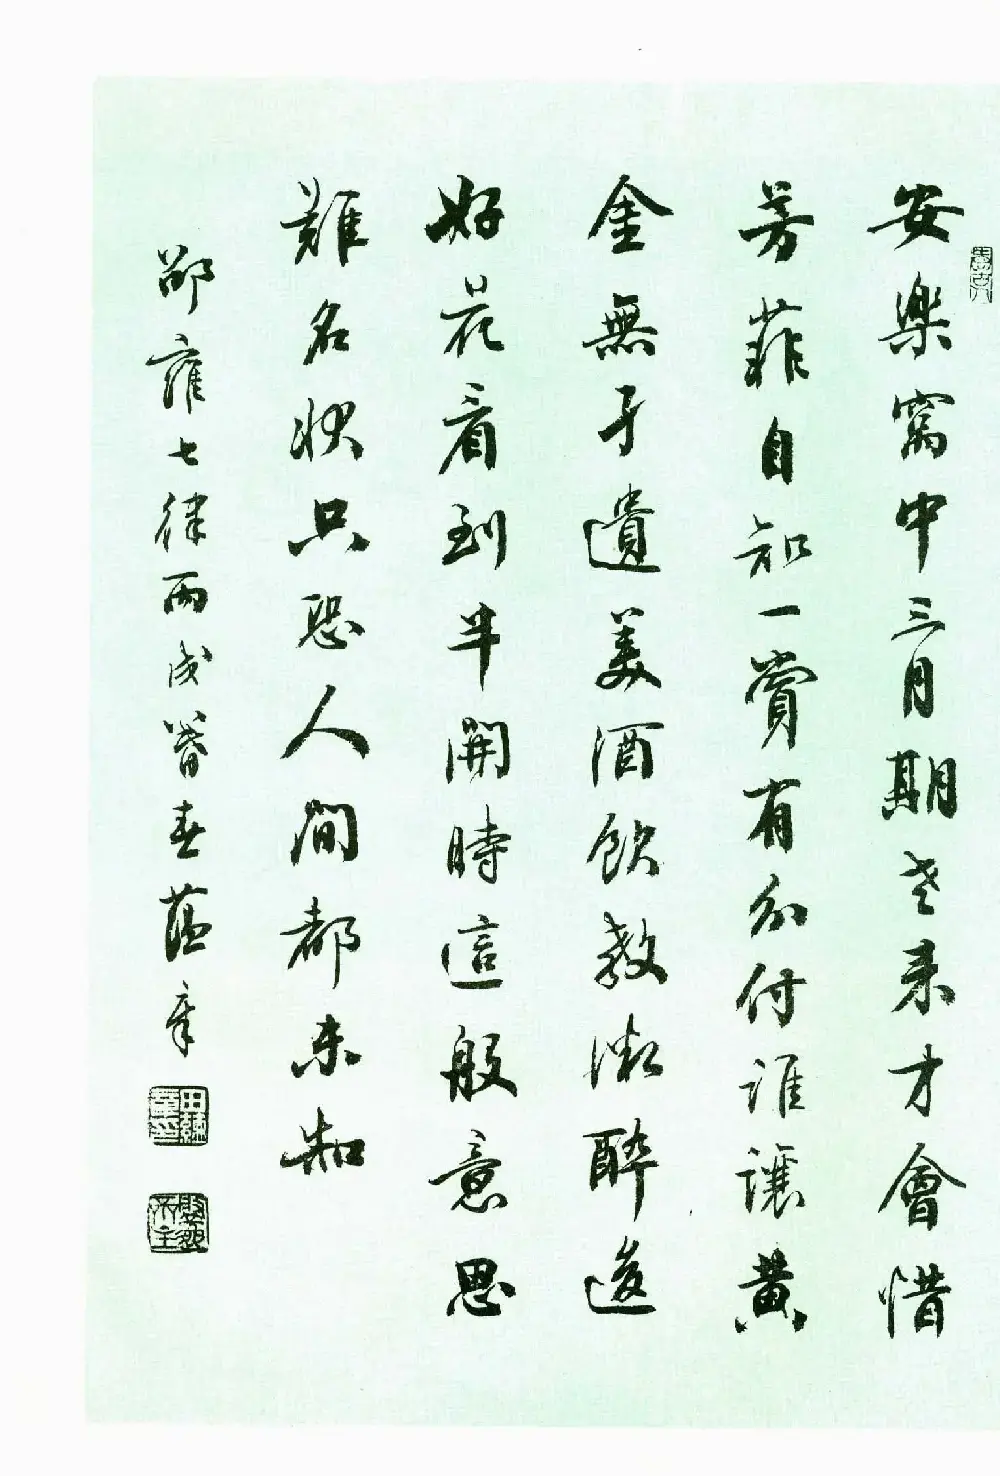 安樂窩中三月期老来才會惜
芳菲自知一賞有分付誰讓黄
金無孑遺美酒飲教微醉後
好花看到半開時這般意思
難名狀只恐人間都未知
邵雍七律丙戌暮春蘊章
田蘊章印